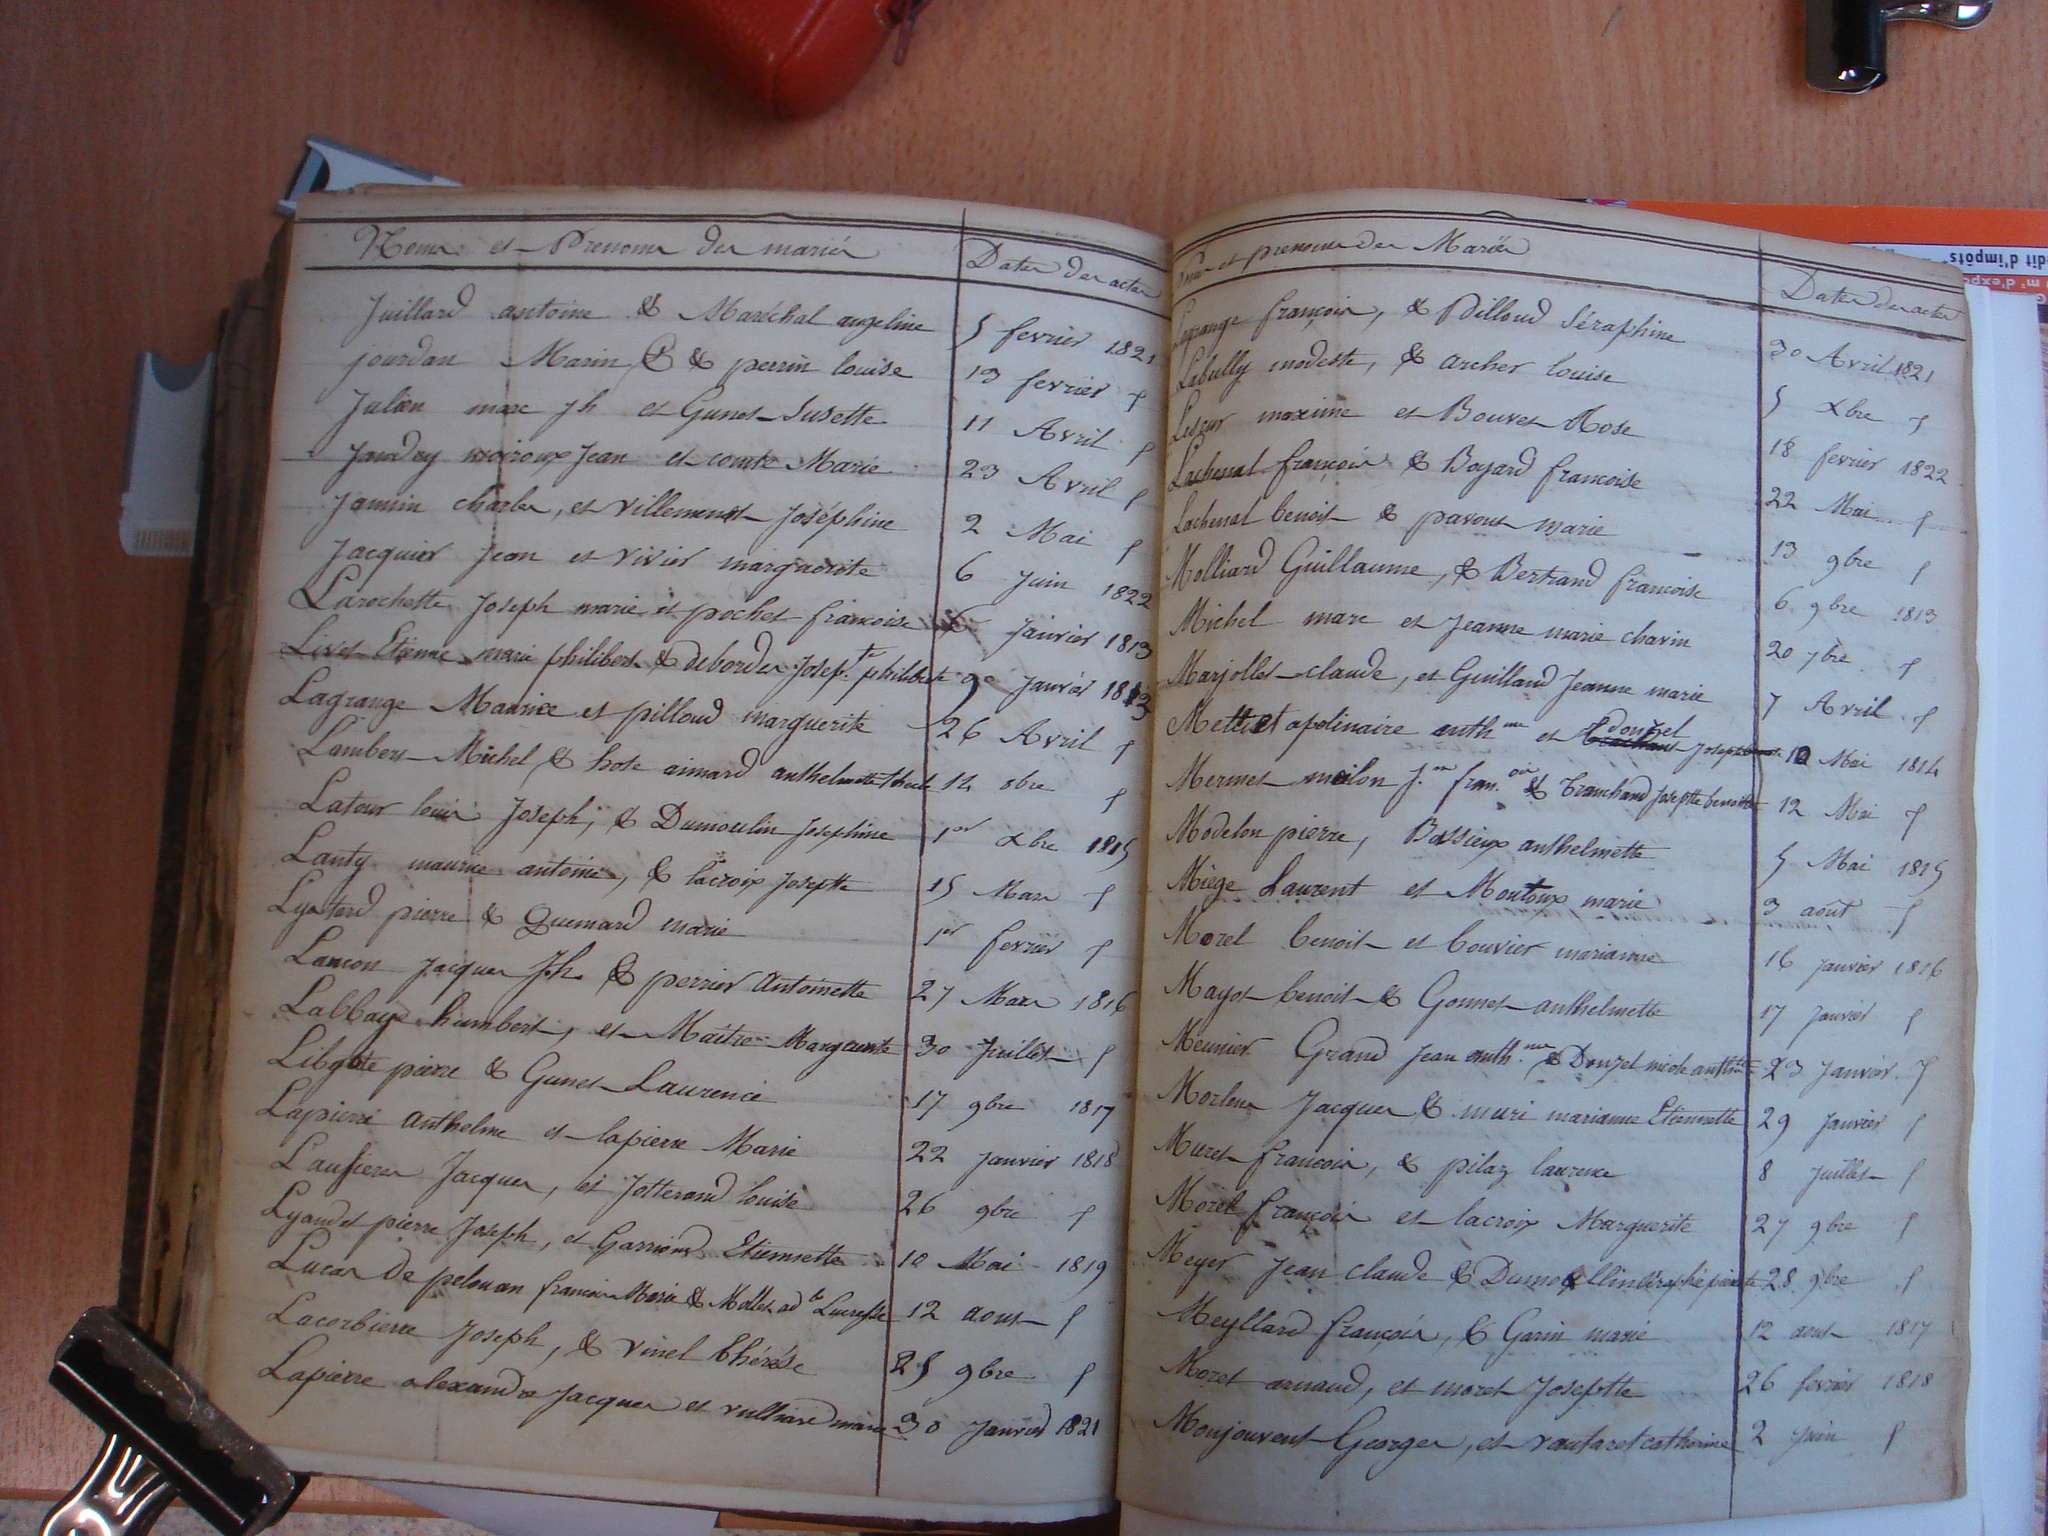 Noms et Prenoms des mariés
Dates des actes
Juillard antoine & Maréchal angeline 5 fevrier 1821
jourdan Marin & perrin louise 13 fevrier
Julien marc jh et Gunet Susette 11 Avril
Jean et comte Marie 23 Avril
Jannin charles, et villement Joséphine 2 Mai
Jacquier Jean et vivier marguerite 6 Juin 1822
Larochette Joseph marie et pochet francoise Janvier 1813
Livet Etienne marie philibert & debordes Janvier
Lagrange Maurice et pilloud marguerite 26 Avril
Lambert Michel & aimard 14 8bre
Latour louis Joseph, & Dumoulin Josephine 1er xbre 1815
Lanty maurice antoine, & lacroix Josepte 15 Mars
pierre & Quemard marie 1er fevrier
Lancon Jacques Jh & perrier Antoinette 27 Mars 1816
Labbaye humbert, et Maitre Marguerite 30 Juillet
pierre & Gunet Laurence 17 9bre 1817
Lapierre anthelme et lapierre Marie 22 Janvier 1818
Jacques, et Jotterand louise 26 9bre
Lyaudet pierre Joseph, et Etiennette 10 Mai 1819
Lucas De pelouan francois Marie & Mollet 12 aout
Lacorbierre Joseph, & vinel thérése 25 9bre
Lapierre alexandre Jacques et vulliard marie 30 Janvier 1821
Noms et prenoms des Mariés
Dates des actes
Lagrange françois, & Pilloud Séraphine 30 Avril 1821
Labully modeste, & archer louise 5 xbre
maxime et Bouvet Rose 18 fevrier 1822
Lachenal françois & Boyard francoise 22 Mai
Lachenal benoit & pavout marie 13 9bre
Molliard Guillaume, & Bertrand francoise 6 9bre 1813
Michel marc et Jeanne marie chavin 20 7bre
Marjollet claude, et Guilland Jeanne marie 7 Avril
Mettret apolinaire anth.me et douzel 10 Mai 1814
Mermet molon J.n fran.ois & Tranchand Josepte benoite 12 Mai
Modelon pierre, Bassieux anthelmette 5 Mai 1815
Miège Laurent et Montoux marie 3 août
Morel benoit et bouvier marianne 16 Janvier 1816
Mayot benoit & Gonnet anthelmette 17 Janvier
Meunier Grand Jean anth.me & Douzel nicole 23 Janvier
Jacques & muri marianne Etiennette 29 Janvier
Muret francois, & pilaz laurence 8 Juillet
Morel françois et lacroix Marguerite 27 9bre
Meyer Jean claude & 28 9bre
Meyllard françois, & Garin marie 12 aout 1817
Moret arnaud, et moret Josepte 26 fevrier 1818
Monjouvent Georges, et vautaret catherine 2 Juin
dit d'impôts